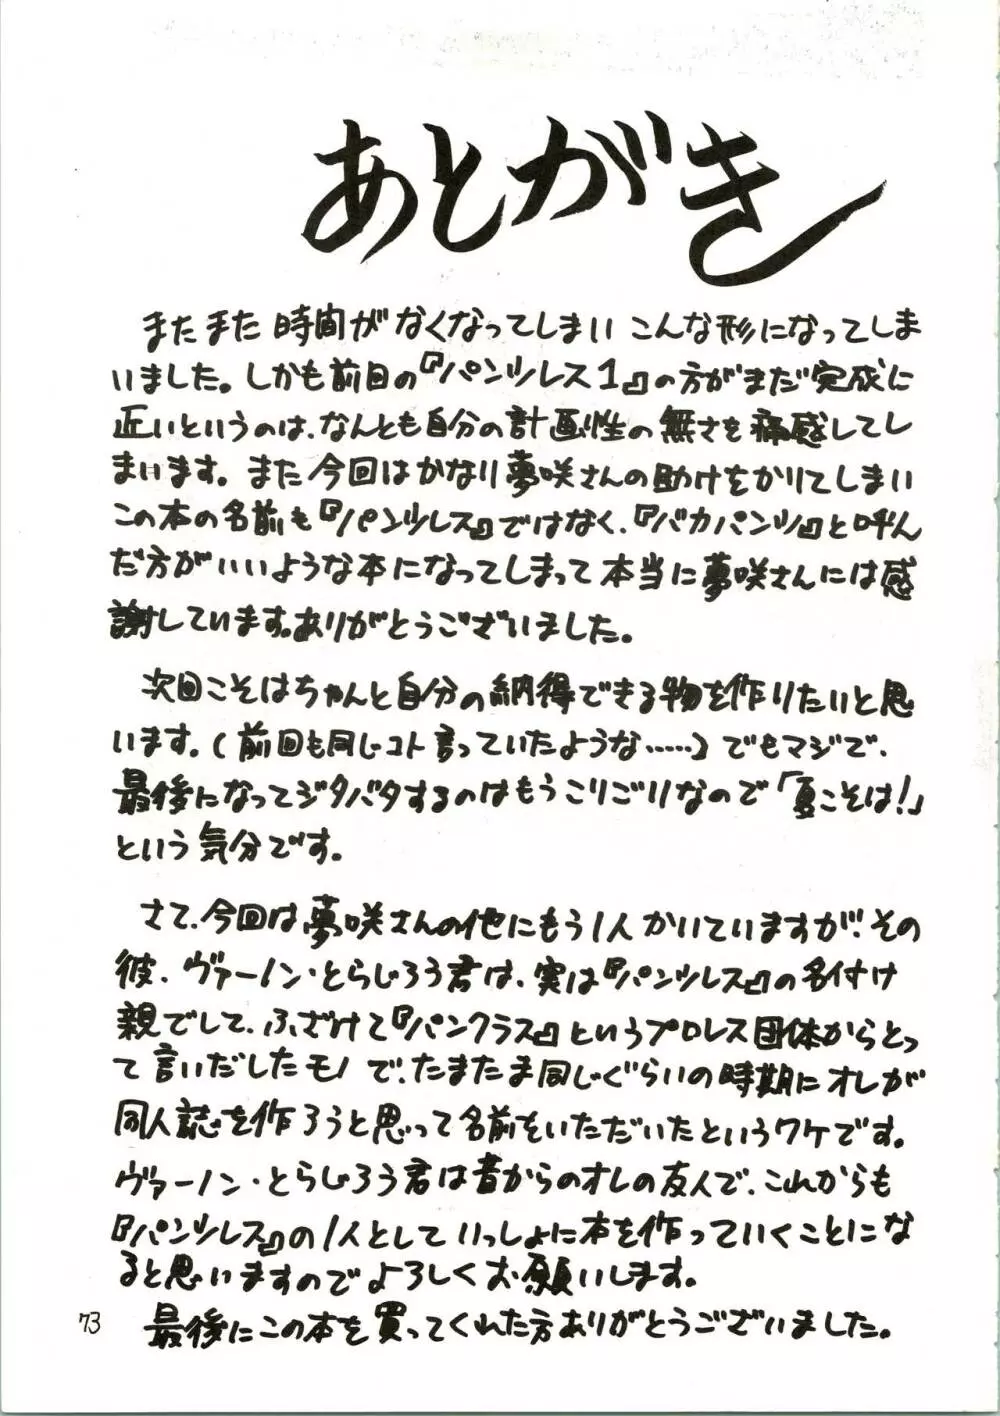 あとがき
またまた時間がなくなってしまいこんな形になってしま
いました。しかも前日の『パンツレス1』の方がまだ完成に
近いというのは、なんとも自分の計画性の無さを痛感してし
まいます。また今回はかなり夢咲さんの助けをかりてしまい
この本の名前も『パンツレス』ではなく、『バカパンツ』と呼ん
だ方がいいような本になってしまって本当に夢咲さんには感
謝しています。ありがとうございました。
次回こそはちゃんと自分の納得できる物を作りたいと思
います。(前回も同じコト言っていたような……)でもマジで、
最後になってジタバタするのはもうこりごりなので「夏こそは!」
という気分です。
さて、今回は夢咲さんの他にもう1人かいていますが、その
彼、ヴァーノン・とらじろう君は、実は『パンツレス』の名付け
親でして、ふざけて『パンクラス』というプロレス団体からとっ
て言いだしたモノで、たまたま同じぐらいの時期にオレが
同人誌を作ろうと思って名前をいただいたというワケです。
ヴァーノン・とらじろう君は昔からのオレの友人で、これからも
『パンツレス』の1人としていっしょに本を作っていくことにな
ると思いますのでよろしくお願いします。
最後にこの本を買ってくれた方ありがとうございました。
73